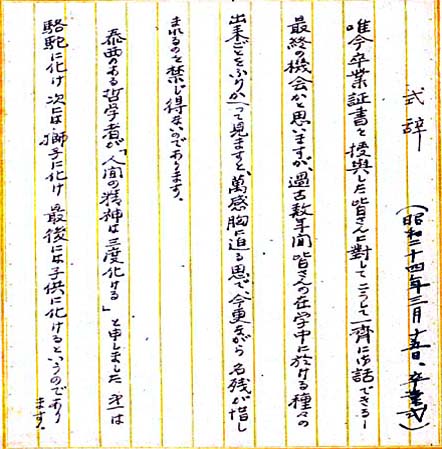 式辞
(昭和二十四年三月十五日、卒業式)
唯今卒業証書を授与した皆さんに対してこうして一齊にお話できるー
最終の機会かと思いますが、過去数年間皆さんの在学中に於ける種々の
出来ごとをふりかへって見ますと、萬感胸に迫る思で、今更ながら名残が惜し
まれるのを禁じ得ないのであります。
泰西のある哲学者が「人間の精神は三度化ける」と申しました 第一は
駱駝に化け 次には獅子に化け 最後には子供に化けるというのであり
ます。